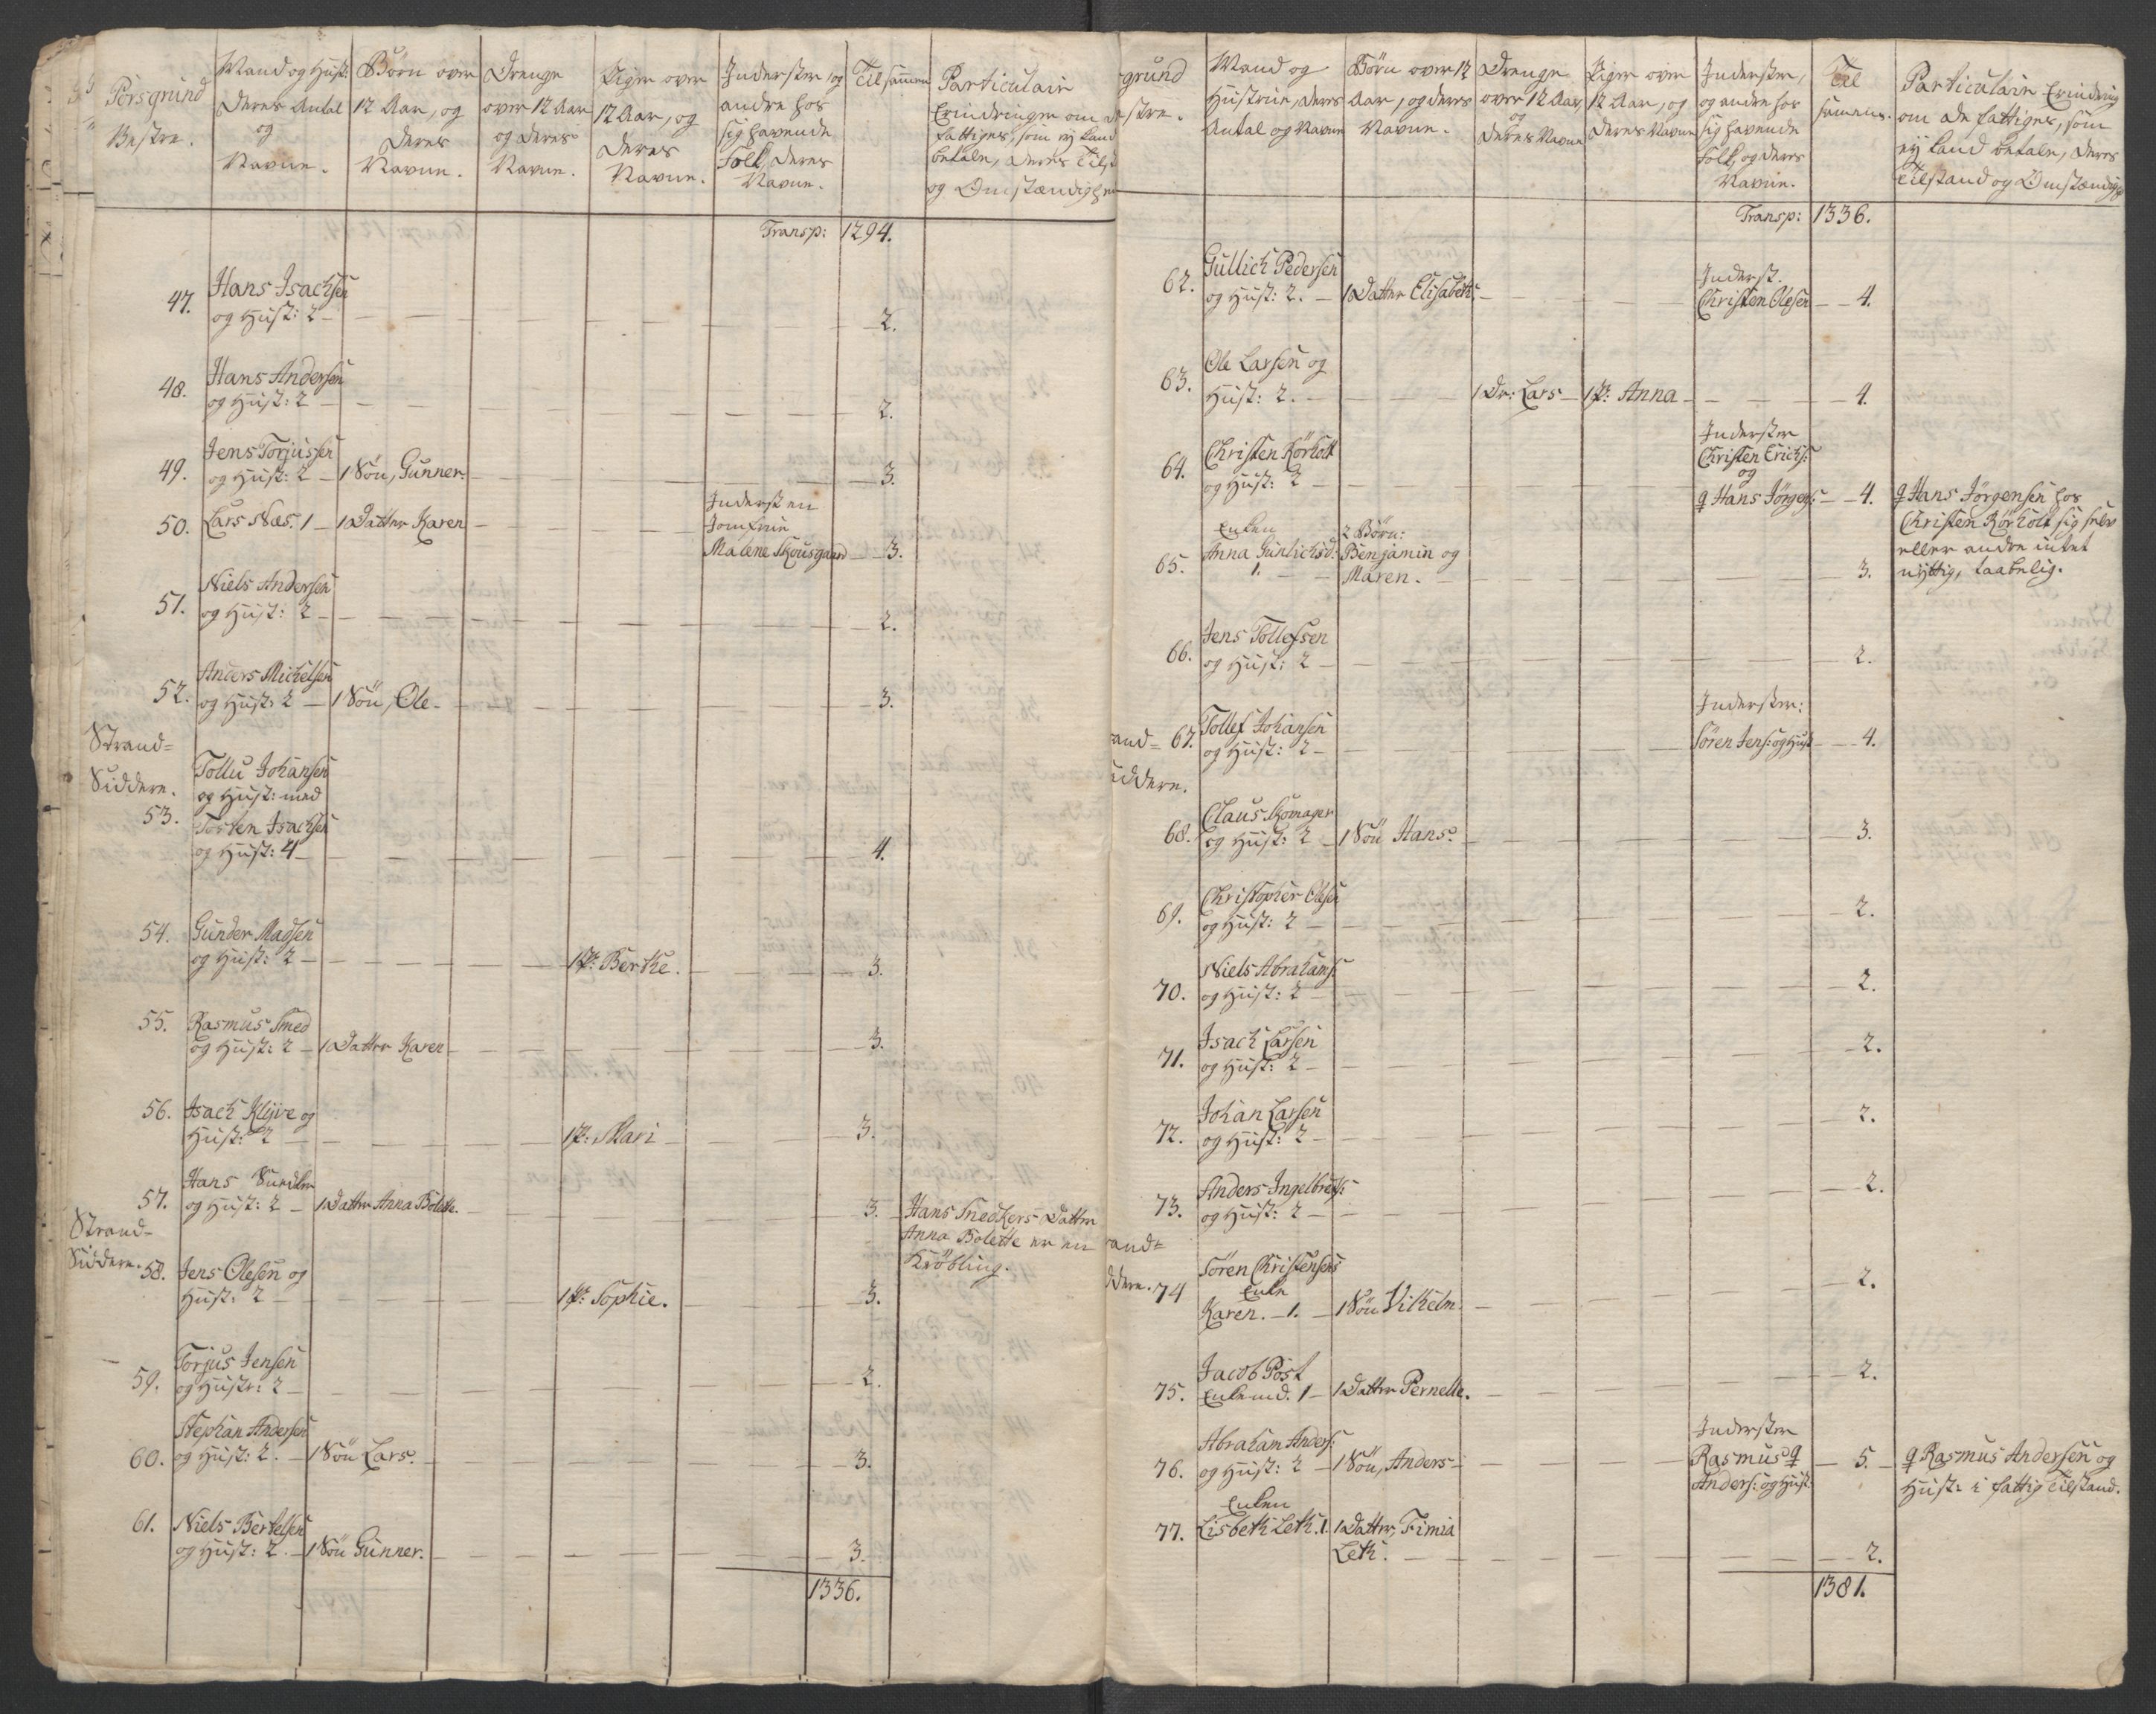 Porsgrund
Vestre.
Mand og Hust:
Deres Antal
og
Navne.
Børn over
12 Aar, og
Deres
Navne.
Drenge
over 12 Aar
og Deres
Navne.
Piger over
12 Aar, og
Deres
Navne.
Inderster, og
andre hos
sig havende
Folk, Deres
Navne.
Tilsamen
Particulair
Erindringer om de
fattiges, som ej kand
betale, Deres Tilst
og Omstændighe
Transp: 1294.
47. Hans Isachsen
og Hust: 2 — 2.
48. Hans Andersen
og Hust: 2 — 2.
49. Jens Torjussen
og Hust: 2 — 1 Søn, Gunner. — 3.
Inderst en
50. Lars Næs. 1 — 1 Datter Karen — Jomfrue
Malene Skousgaard — 3.
51. Niels Andersen
og Hust: 2 — 2.
52. Anders Michelsen
og Hust: 2 — 1 Søn, Ole — 3.
Strand=
Siddere.
53. Tollu Johansen
og Hust: med
Tosten Isachsen
og Hust: 4 — 4.
54. Gunder Madsen
og Hust: 2 — 1 P: Berthe. — 3.
55. Rasmus Smed
og Hust: 2 — 1 Datter Karen — 3.
56. Isach Klyve og
Hust: 2 — 1 P: Mari — 3.
57. Hans Snedker
og Hust: 2 — 1 Datter Anna Bolette. — 3. — Hans Snedkers Datter
Anna Bolette er en
Krøbling.
Strand-
Siddere.
58. Jens Olesen og
Hust: 2 — 1 P: Sophie. — 3.
59. Torjus Jensen
og Hustr: 2 — 2.
60. Stephan Andersen
og Hust: 2. — 1 Søn Lars. — 3.
61. Niels Bertelsen
og Hust: 2. — 1 Søn Gunner. — 3.
1336.
grund
stre.
Mand og
Hustrue, Deres
Antal og Navne
Børn over 12
Aar, og deres
Navne.
Drenge
over 12 Aar,
og
Deres Navne
Piger over
12 Aar, og
Deres Navne
Inderster,
og anden hos
sig havende
Folk, og deres
Navne.
Til
samens.
Particulair Erindring
om de fattiges, som
ej kand betale, Deres
Tilstand og Omstændigh
Transp: 1336.
62. Gullich Pedersen
og Hust: 2. — 1 Datter Elisabeth. — Inderst.
Christen Olesen — 4.
63. Ole Larsen og
Hust: 2. — 1 Dr: Lars — 1 P: Anna — 4.
64. Christen Kørholt
og Hust: 2 — Inderster
Christen Erichs:
og
Hans Jørgens: — 4. Hans Jørgensen hos
Christen Kørholt sig selv
eller andre intet
nyttig, taabelig.
65. Enken
Anna Gunlichsd:
1. — 2 Børn:
Benjamin og
Maren. — 3.
66. Jens Tollefsen
og Hust: 2 — 2.
and=
iddere.
67. Tollef Johansen
og Hust: 2 — Inderster:
Søren Jens: og Hust — 4.
68. Claus Skomager
og Hust: 2 — 1 Søn Hans. — 3.
69. Christopher Olsen
og Hust: 2 — 2.
70. Niels Abrahams:
og Hust: 2 — 2.
71. Isach Larsen
og Hust: 2 — 2.
72. Johan Larsen
og Hust: 2 — 2.
73. Anders Ingelbrets:
og Hust: 2 — 2.
and=
ddere.
74 Søren Christensens
Enke
Karen. — 1. — 1 Søn Vilhelm. — 2.
75. Jacob Post
Enkemd. 1 — 1 Datter Pernelle. — 2.
76. Abraham Anders:
og Hust: 2 — 1 Søn, Anders — Inderster
Rasmus
Anders: og Hust: — 5. — Rasmus Andersen og
Hust: i fattig Tilstand.
77. Enken
Lisbeth Leth. 1. 1 Datter, Fimia
Leth. — 2.
1381.